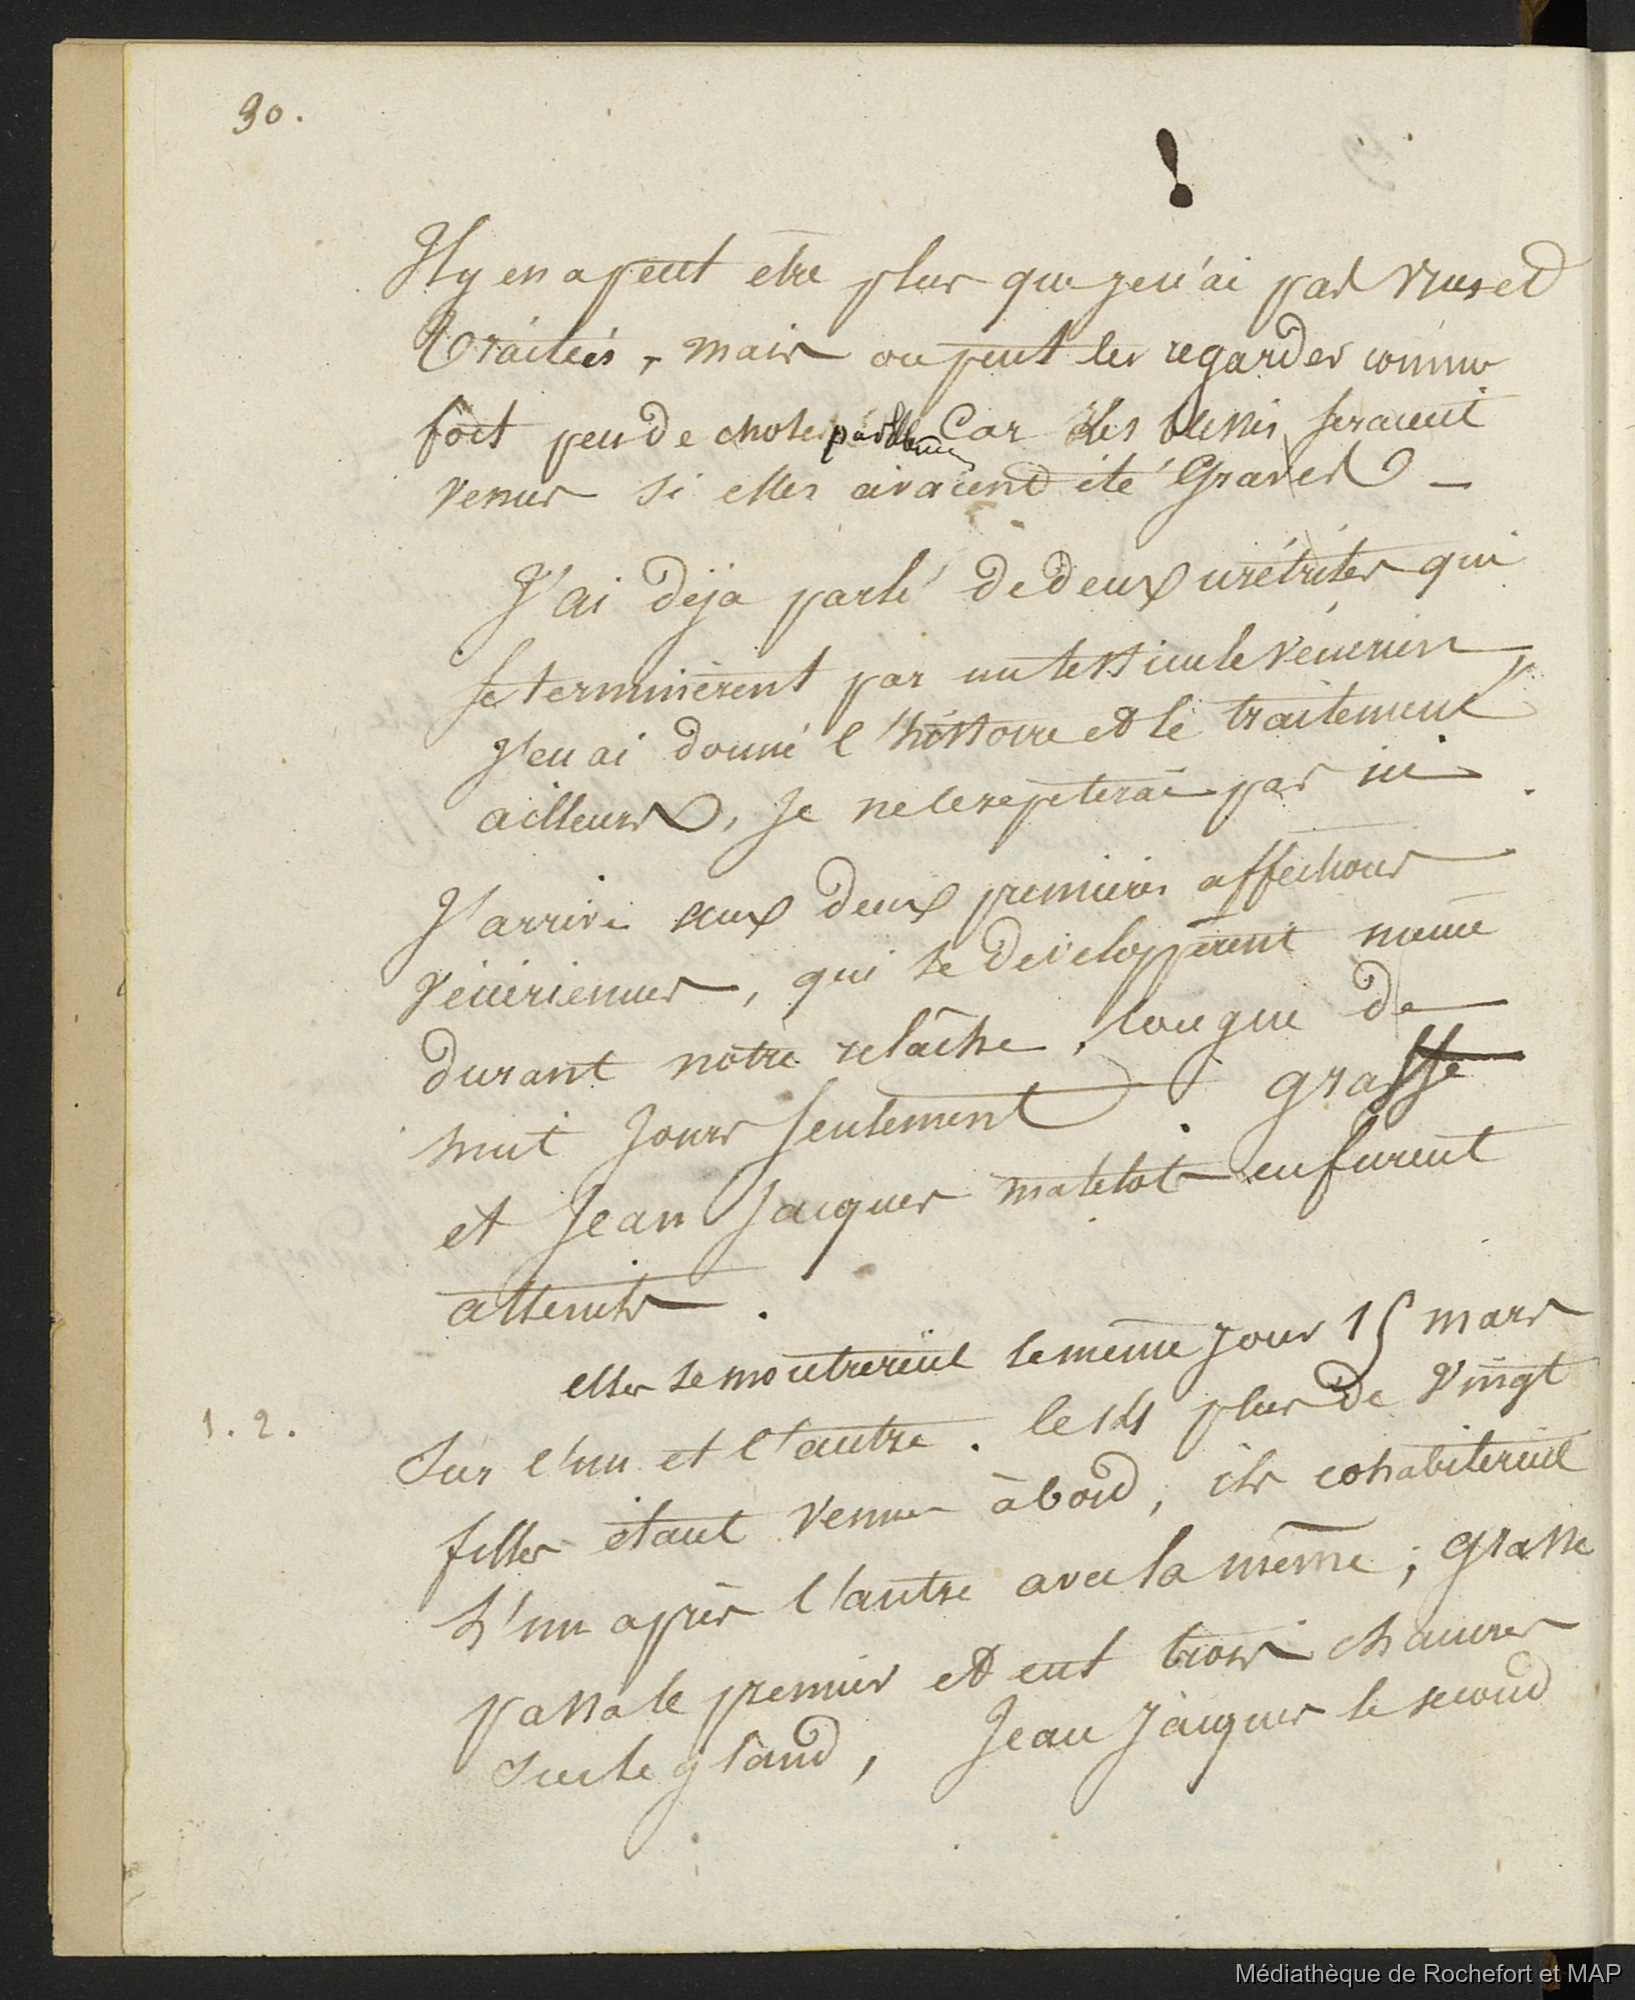 30.
Il y en a peut etre plus que je n'ai pas vus et
traitées, mais on peut les regarder comme
fort peu de chose Car elles seraient
venues si elles avaient été Graves
J'ai déja parlé de deux urétrites qui
se terminèrent par un testicule vénerien,
j'en ai donné l'histoire et le traitement
ailleurs, Je ne le repeterai pas ici.
J'arrive aux deux premieres affections
véneriennes, qui se developpèrent même
durant notre relâche, longue de
huit Jours seulement. grasse
et Jean Jacques matelot en furent
atteints.
elles se montrerent le meme jour 15 mars
1. 2.
Sur l'un et l'autre. le 14 plus de vingt
filles étant venues à bord, ils cohabiterent
L'un après l'autre avec la même; grasse
passa le premier et eut trois chancres
Sur le gland, Jean Jacques le second
Médiathèque de Rochefort et MAP